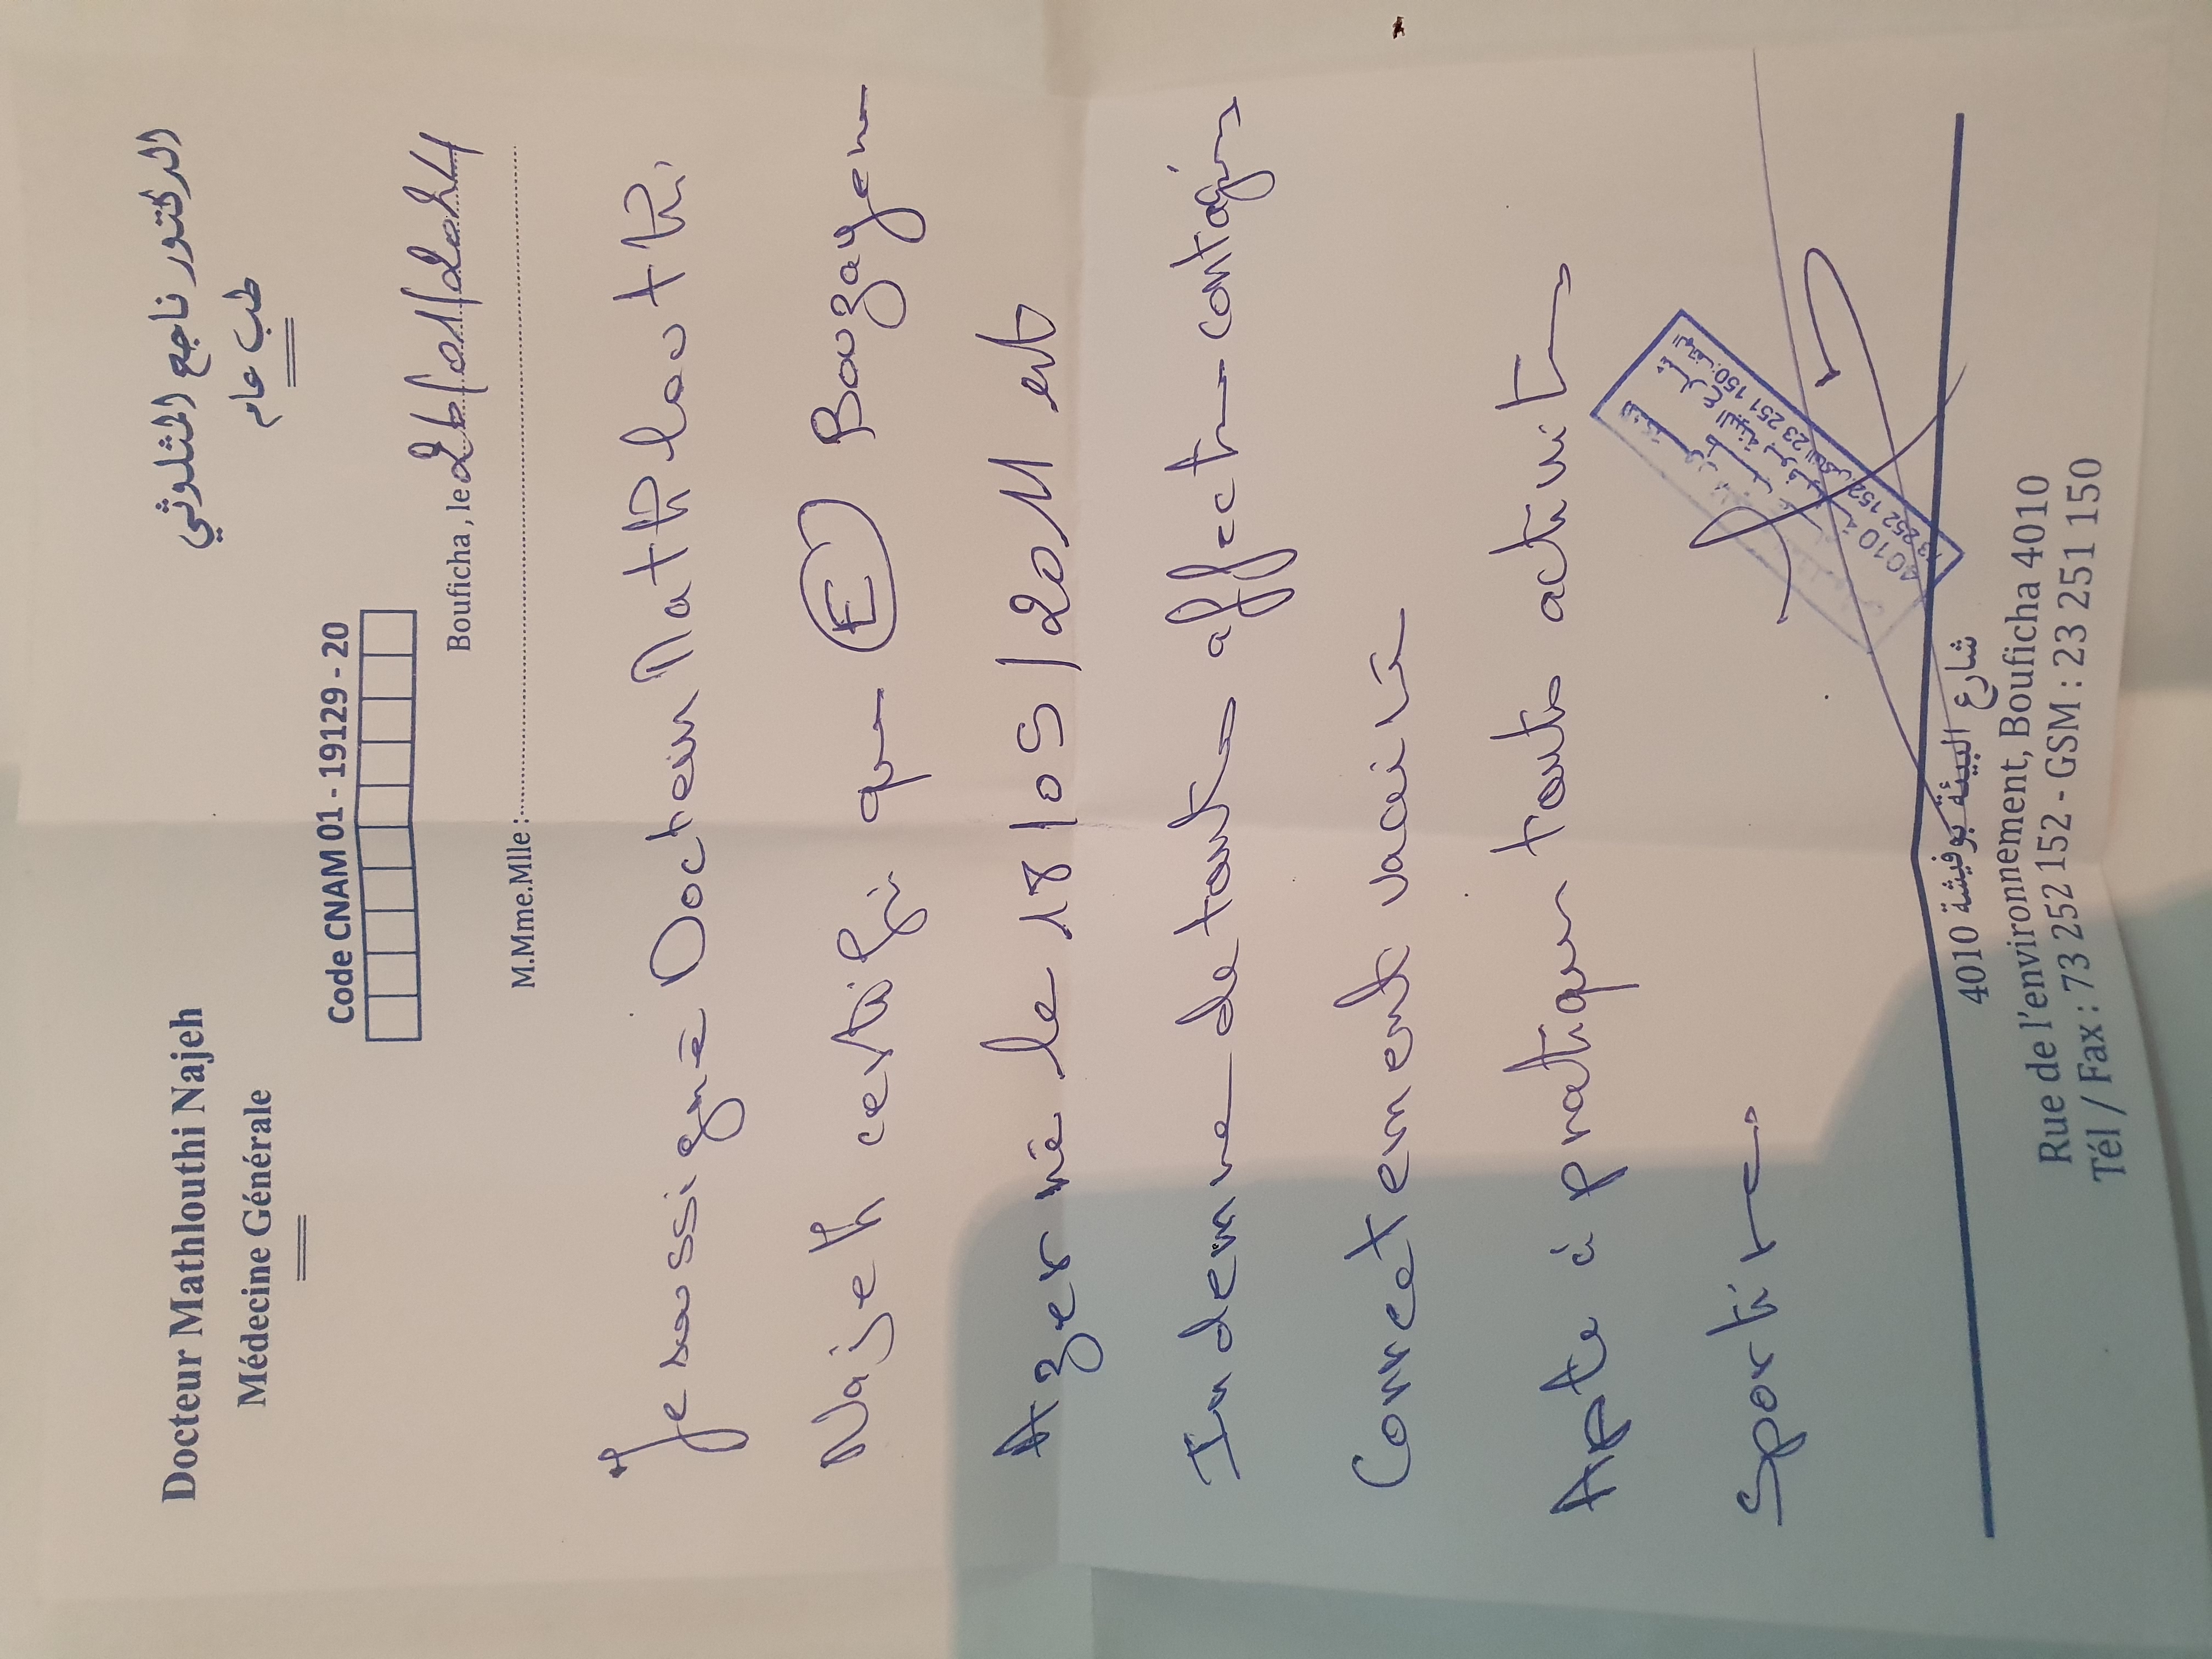 Docteur Mathlouthi Najeh
Médecine Générale
الدكتور ناجع المثلوثي
طب عام
Code CNAM 01 - 19129 - 20
Bouficha, le 26/01/2024
M.Mme.Mlle :
Je soussigné Docteur Mathlouthi
Najeh certifie que E Bougayen
Azer né le 18/09/2011 est
Indemne de toute affection contagieuse
Correctement vacciné
Apte à pratiquer toute activité
sportive.
شارع البيئة بوفيشة 4010
23 251 150
4010
شارع البيئة بوفيشة 4010
Rue de l'environnement, Bouficha 4010
Tél / Fax : 73 252 152 - GSM : 23 251 150